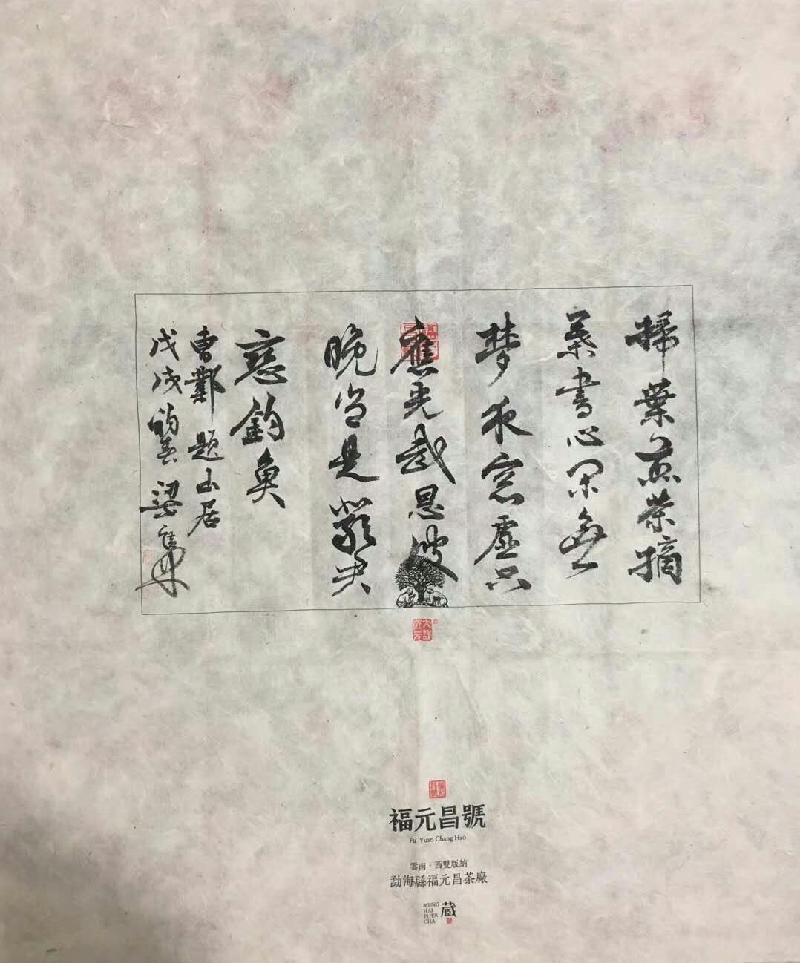 掃葉煎茶摘
葉書心閑無
梦夜窓虛只
應光武恩波
晚豈是嚴君
戀釣魚
曹鄴題山居
戊戌 梁
福元昌號
Fu Yuan Chang Hao
雲南·西雙版納
勐海縣福元昌茶廠
藏